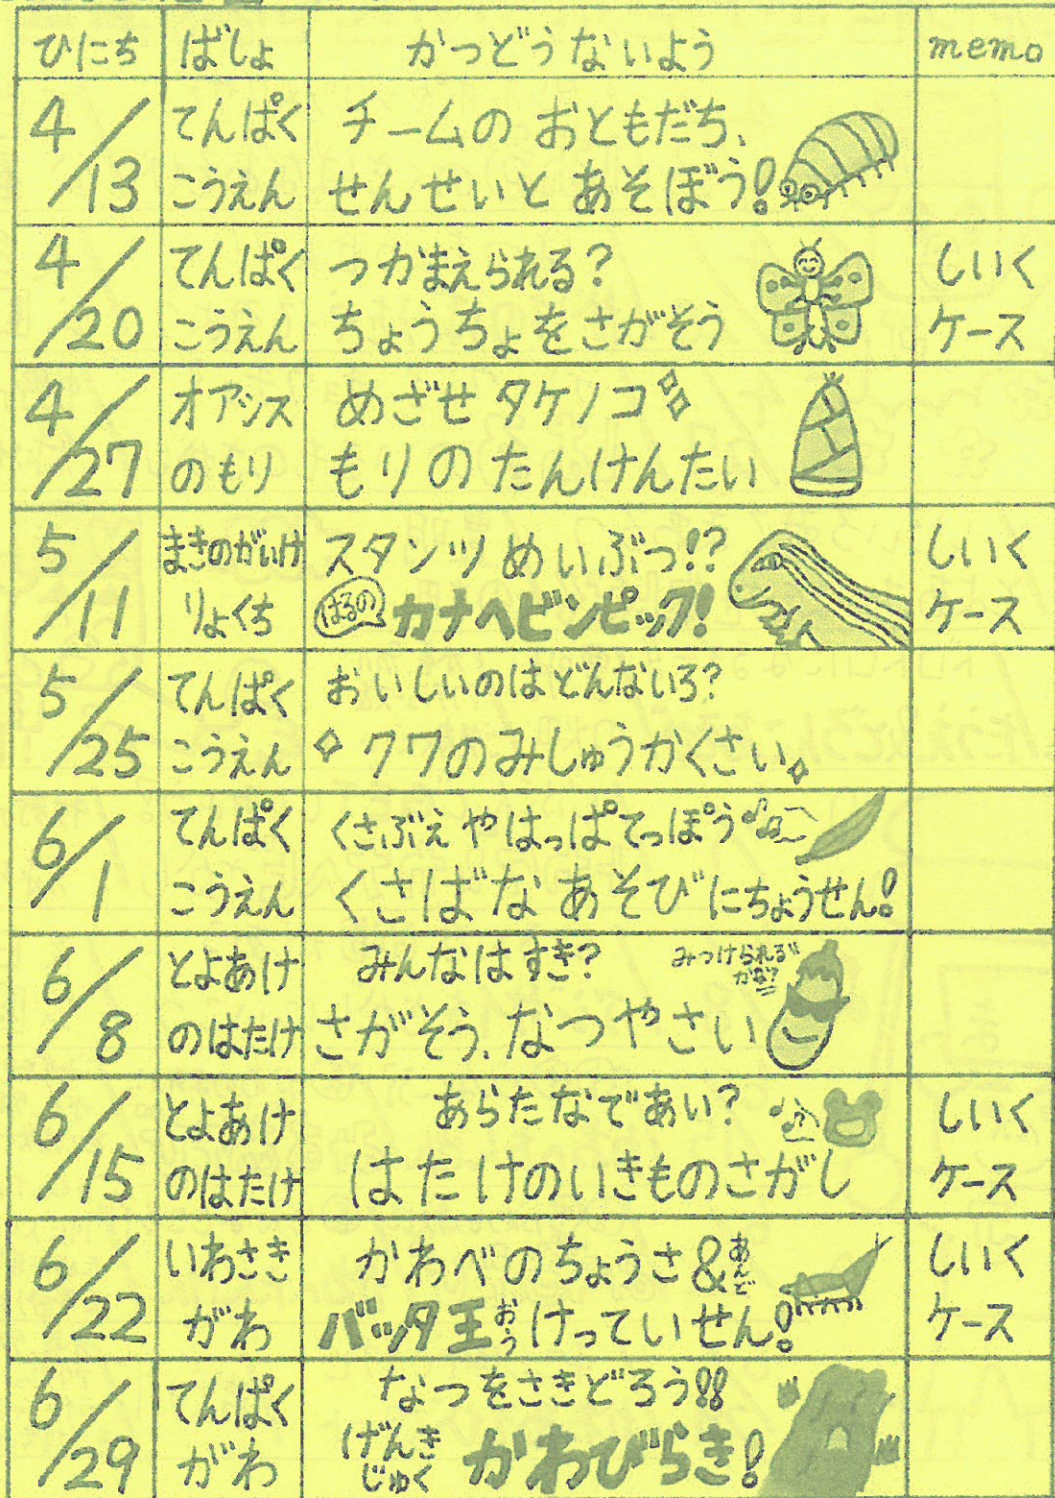 ひにち ばしょ かつどうないよう memo
4/13 てんぱくこうえん チームの おともだち、
せんせいと あそぼう!
4/20 てんぱくこうえん つかまえられる?
ちょうちょをさがそう
しいくケース
4/27 オアシスのもり めざせ タケノコ
もりのたんけんたい
5/11 まきのがいけりょくち スタンツ めいぶつ!?
はるの カナヘビンピック!
しいくケース
5/25 てんぱくこうえん おいしいのはどんないろ?
クワのみしゅうかくさい
6/1 てんぱくこうえん くさぶえ やはっぱてっぽう
くさばな あそびにちょうせん!
6/8 とよあけのはたけ みんなはすき?
みつけられるかな?
さがそう、なつやさい
6/15 とよあけのはたけ あらたなであい?
はたけのいきものさがし
しいくケース
6/22 いわさきがわ かわべのちょうさ&あんど
バッタ王おうけっていせん!
しいくケース
6/29 てんぱくがわ なつをさきどろう!!
げんきじゅく かわびらき!